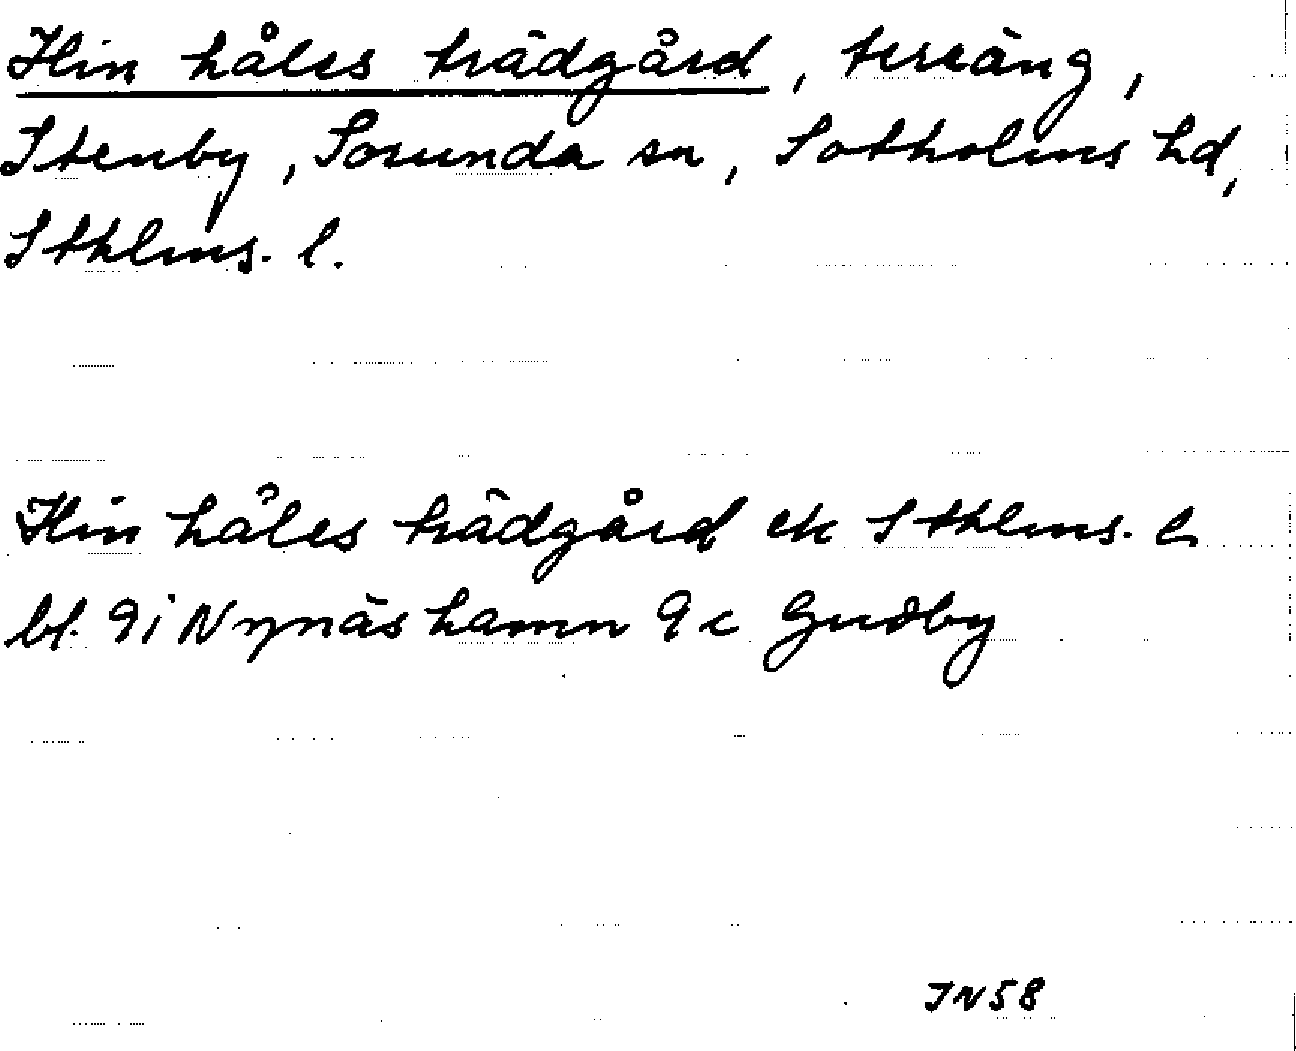 Hin håles trädgård, terräng,
Stenby, Sorunda sn, Sotholms hd,
Sthlms. l.
Hin håles trädgård ek Sthlms. l.
bl. 9i Nynäshamn 9 c Gudby
JN58